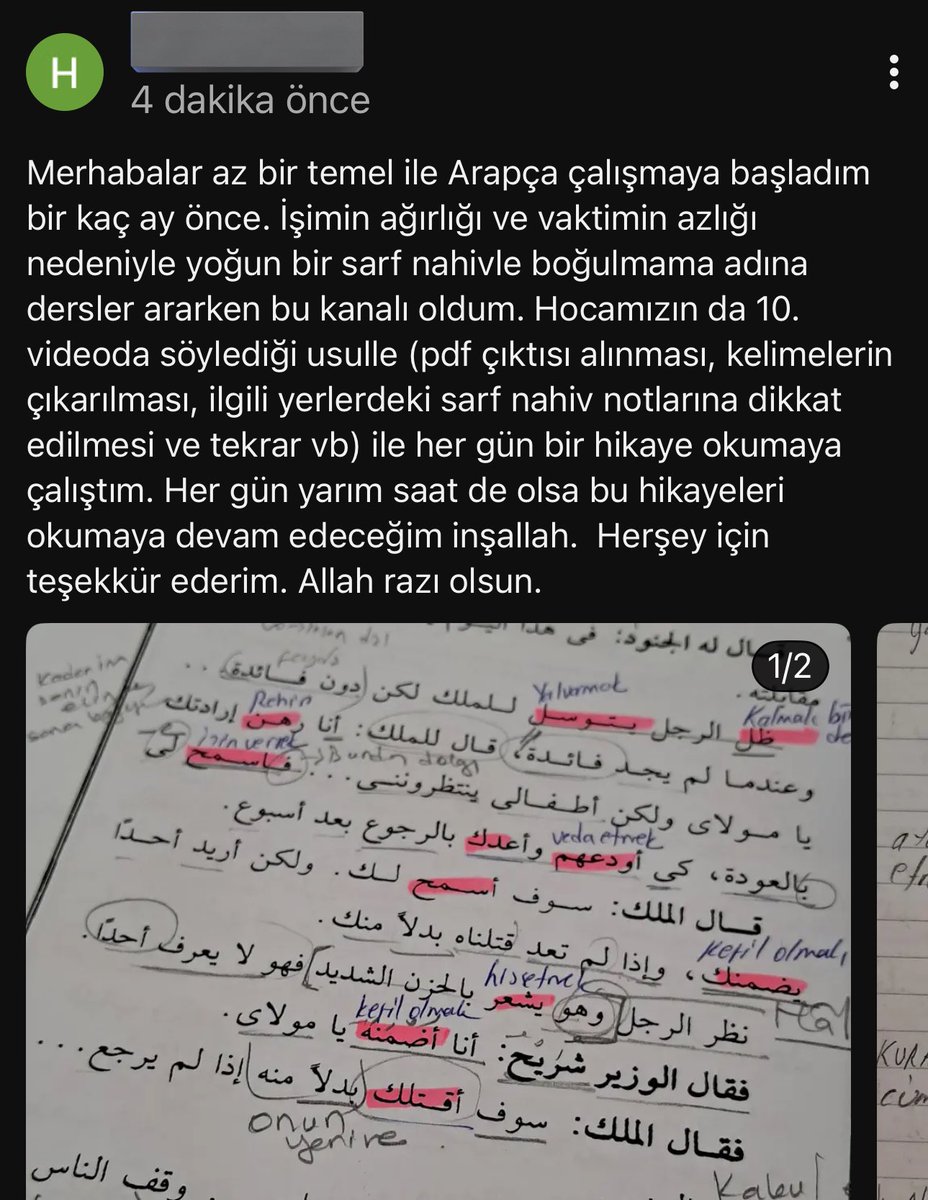 H
4 dakika önce
Merhabalar az bir temel ile Arapça çalışmaya başladım
bir kaç ay önce. İşimin ağırlığı ve vaktimin azlığı
nedeniyle yoğun bir sarf nahivle boğulmama adına
dersler ararken bu kanalı oldum. Hocamızın da 10.
videoda söylediği usulle (pdf çıktısı alınması, kelimelerin
çıkarılması, ilgili yerlerdeki sarf nahiv notlarına dikkat
edilmesi ve tekrar vb) ile her gün bir hikaye okumaya
çalıştım. Her gün yarım saat de olsa bu hikayeleri
okumaya devam edeceğim inşallah.  Herşey için
teşekkür ederim. Allah razı olsun.
1/2
ال له الجنود: فى هذا
مقابلته.
Yalvarmak
Kalmak
ظل الرجل يتوسل للملك لكن (دون فائدة) ..
Rehin
وعندما لم يجد فائدة، قال للملك: أنا رهن إرادتك
izin vermek
يا مولاى ولكن أطفالى ينتظروننى... فاسمح لى
veda etmek
بالعودة، كى أودعهم وأعدك بالرجوع بعد أسبوع.
قال الملك: سوف أسمح لك. ولكن أريد أحدًا
kefil olmak
يضمنك، وإذا لم تعد قتلناه بدلاً منك.
hisetmek
Hal
نظر الرجل [وهو يشعر بالحزن الشديد] فهو لا يعرف أحدًا.
kefil olmak
فقال الوزير شُرَيْح: أنا أضمنه يا مولاى.
فقال الملك: سوف أقتلك بدلاً منه إذا لم يرجع...
onun
yerine
وقف الناس